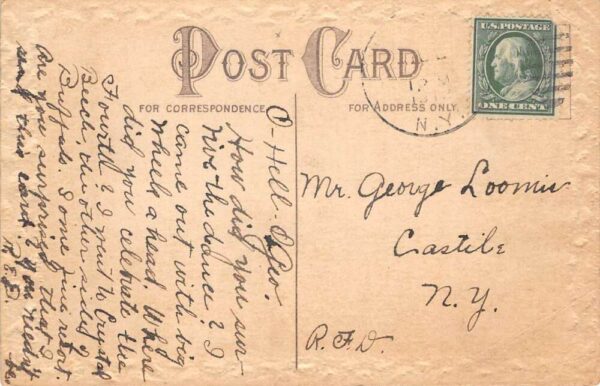 POST CARD
FOR CORRESPONDENCE
FOR ADDRESS ONLY
U.S. POSTAGE
ONE CENT
N.Y.
O-Hell-O Geo.
How did you sur
vive the dance? I
came out with big
wheels a head. Where
did you celebrate the
Fourth? I went to Crystal
Beech, the other side of
Buffalo. Some fine resort.
Are you surprised that I
send this card you needn't
be
Mr. George Loomis
Castile
N.Y.
R.F.D.